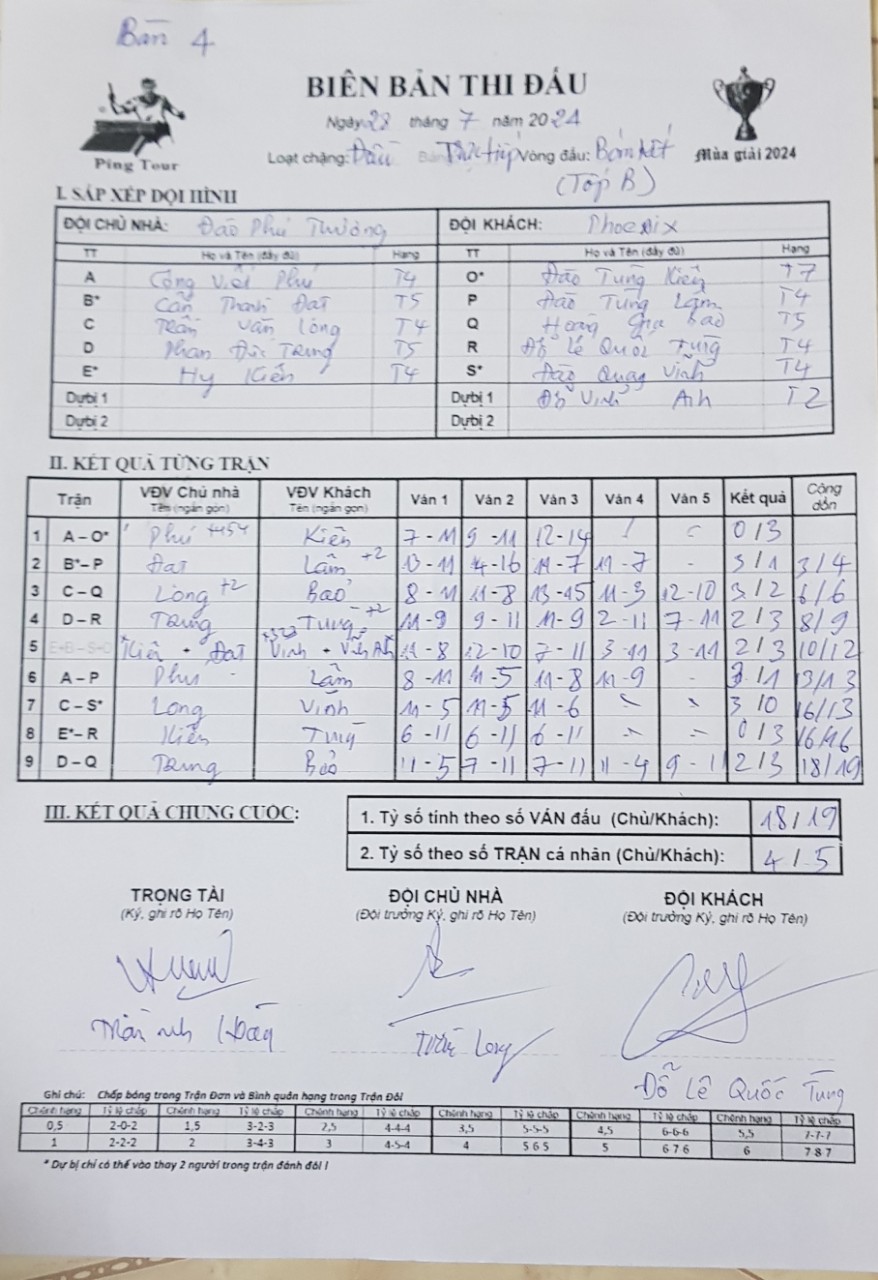 Bàn 4
BIÊN BẢN THI ĐẤU
Ngày 28 tháng 7 năm 2024
Ping Tour
Loạt chặng: Đấu Trực tiếp Vòng đấu: Bán kết
Mùa giải 2024
(Top B)
I. SẮP XẾP ĐỘI HÌNH
ĐỘI CHỦ NHÀ: Đào Phú Thường ĐỘI KHÁCH: Phoenix
TT Họ và Tên (đầy đủ) Hạng TT Họ và Tên (đầy đủ) Hạng
A Công Viết Phú T4 O* Đào Tùng Kiên T7
B* Cấn Thành Đạt T5 P Đào Tùng Lâm T4
C Trần Văn Long T4 Q Hoàng Gia Bảo T5
D Phan Đức Trung T5 R Đỗ Lê Quốc Tùng T4
E* Hy Kiên T4 S* Đào Quang Vinh T4
Dự bị 1 Dự bị 1 Đỗ Vinh Anh T2
Dự bị 2 Dự bị 2
II. KẾT QUẢ TỪNG TRẬN
Trận VĐV Chủ nhà Tên (ngắn gọn) VĐV Khách Tên (ngắn gọn) Ván 1 Ván 2 Ván 3 Ván 4 Ván 5 Kết quả Cộng dồn
1 A – O* Phú +454 Kiên 7 - 11 9 - 11 12 - 14 0 / 3
2 B* – P Đạt Lâm +2 13 - 11 4-16 11 - 7 11 - 7 - 3 / 1 3/4
3 C – Q Long +2 Bảo 8 - 11 11 - 8 13 - 15 11 - 3 12 - 10 3 / 2 6/6
4 D – R Trung Tùng +2 11 - 9 9 - 11 11 - 9 2 - 11 7 - 11 2 / 3 8/9
5 E+B – S+O Kiên + Đạt Vinh + Vinh Anh 11 - 8 12 - 10 7 - 11 3 - 11 3 - 11 2 / 3 10/12
6 A – P Phú Lâm 8 - 11 11 - 5 11 - 8 11 - 9 - 3 / 1 13/13
7 C – S* Long Vinh 11 - 5 11 - 5 11 - 6 3 / 0 16/13
8 E* – R Kiên Tùng 6 - 11 6 - 11 6 - 11 0 / 3 16/16
9 D – Q Trung Bảo 11 - 5 7 - 11 7 - 11 11 - 4 9 - 11 2 / 3 18/19
III. KẾT QUẢ CHUNG CUỘC:
1. Tỷ số tính theo số VÁN đấu (Chủ/Khách): 18 / 19
2. Tỷ số theo số TRẬN cá nhân (Chủ/Khách): 4 / 5
TRỌNG TÀI ĐỘI CHỦ NHÀ ĐỘI KHÁCH
(Ký, ghi rõ Họ Tên) (Đội trưởng Ký, ghi rõ Họ Tên) (Đội trưởng Ký, ghi rõ Họ Tên)
Trần Long
Đỗ Lê Quốc Tùng
Ghi chú: Chấp bóng trong Trận Đơn và Bình quân hạng trong Trận Đôi
Chênh hạng Tỷ lệ chấp Chênh hạng Tỷ lệ chấp Chênh hạng Tỷ lệ chấp Chênh hạng Tỷ lệ chấp Chênh hạng Tỷ lệ chấp Chênh hạng Tỷ lệ chấp
0,5 2-0-2 1,5 3-2-3 2,5 4-4-4 3,5 5-5-5 4,5 6-6-6 5,5 7-7-7
1 2-2-2 2 3-4-3 3 4-5-4 4 5 6 5 5 6 7 6 6 7 8 7
* Dự bị chỉ có thể vào thay 2 người trong trận đánh đôi !